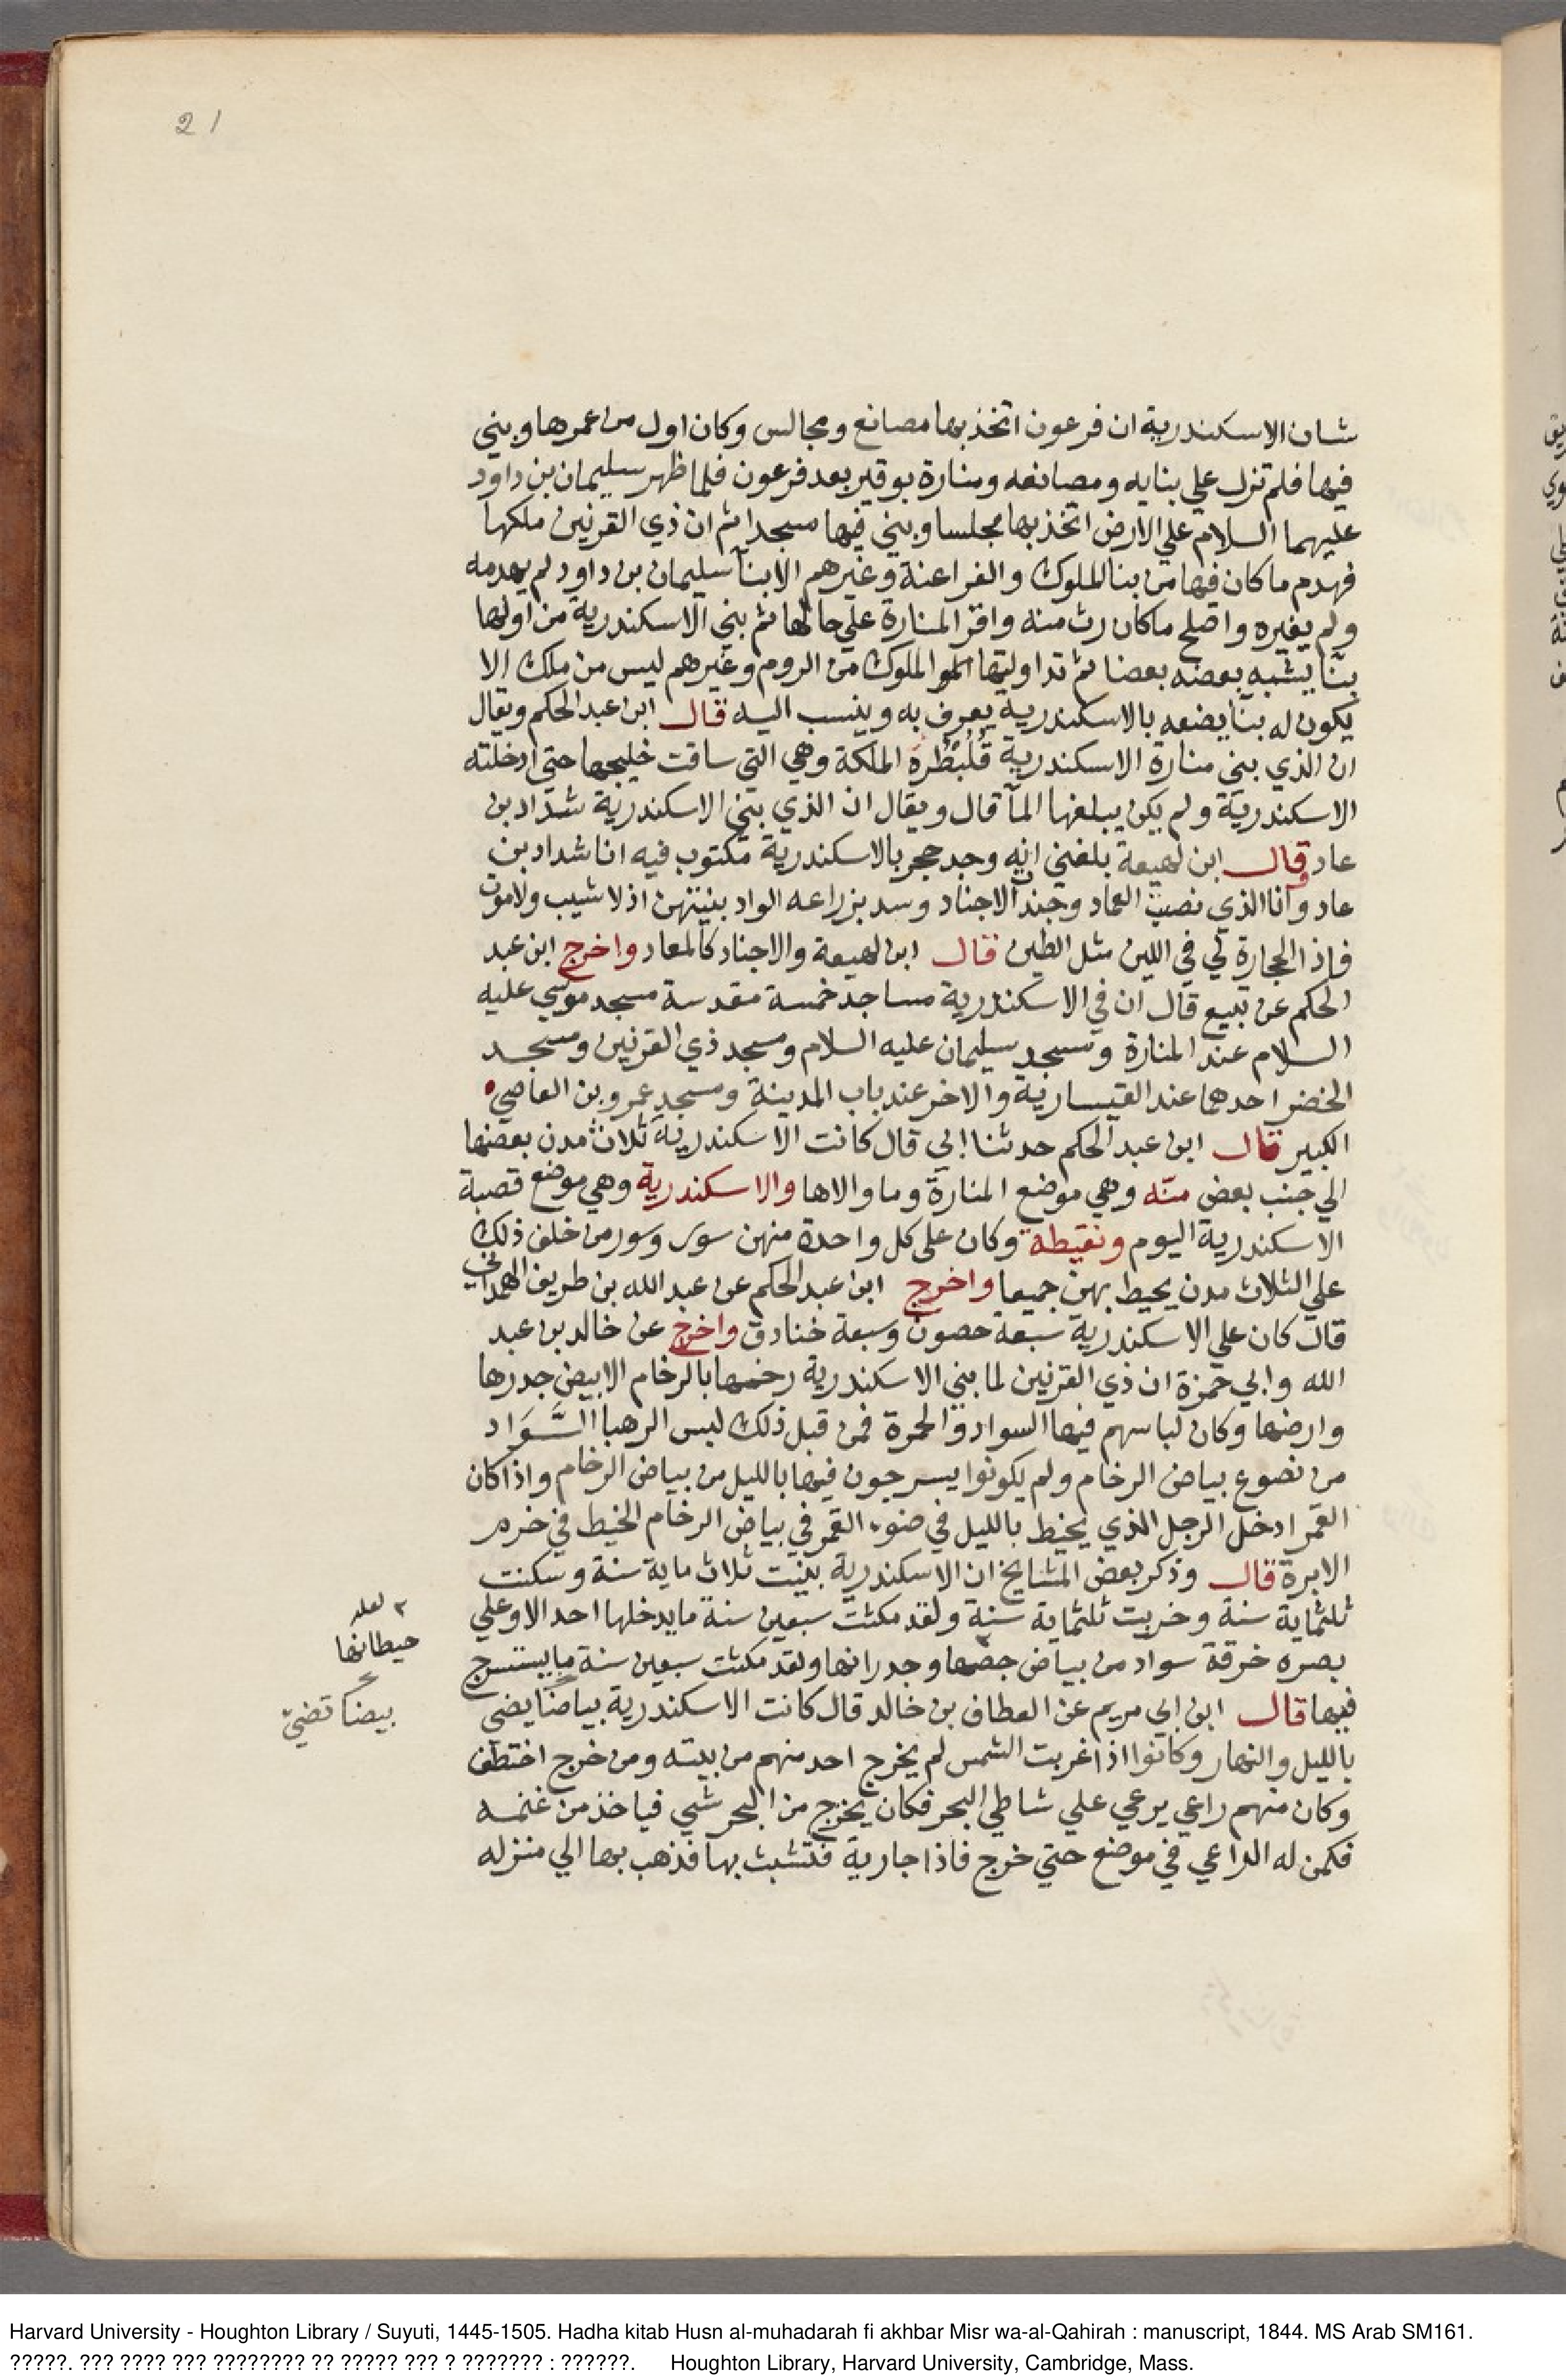 21
شان الاسكندرية ان فرعون اتخذ بها مصانع ومجالس وكان اول من عمرها وبني
فيها فلم تزل علي بنايه ومصانعه ومنارة بوقير بعد فرعون فلما ظهر سليمان بن داود
عليهما السلام علي الارض اتخذ بها مجلسا وبني فيها مسجدا ثم ان ذي القرنين ملكها
فهدم ما كان فيها من بنا الملوك والفراعنة وغيرهم الا بنآ سليمان بن داود لم يهدمه
ولم يغيره واصلح ما كان رث منه واقر المنارة علي حالها ثم بني الاسكندرية من اولها
بنآ يشبه بعضه بعضا ثم تداولتها الملوك من الروم وغيرهم ليس من ملك الا
يكون له بنآ يضعه بالاسكندرية يعرف به وينسب اليه قال ابن عبد الحكم ويقال
ان الذي بني منارة الاسكندرية قُلُبْطُرة الملكة وهي التي ساقت خليجها حتي ادخلته
الاسكندرية ولم يكن يبلغها المآ قال ويقال ان الذي بني الاسكندرية شداد بن
عاد وقال ابن لهيعة بلغني انه وجد حجر بالاسكندرية مكتوب فيه انا شداد بن
عاد وانا الذي نصب العماد وجند الاجناد وسد بزراعه الواد بنيتهن اذ لا شيب ولا موت
فاذ الحجارة لي في اللين مثل الطين قال ابن لهيعة والاجناد كالمعاد واخرج ابن عبد
الحكم عن تبيع قال ان في الاسكندرية مساجد خمسة مقدسة مسجد موسي عليه
السلام عند المنارة ومسجد سليمان عليه السلام ومسجد ذي القرنين ومسجد
الخضر احدهما عند القيسارية والاخر عند باب المدينة ومسجد عمرو بن العاصي
الكبير قال ابن عبد الحكم حدثنا ابي قال كانت الاسكندرية ثلاث مدن بعضها
الي جنب بعض منّه وهي موضع المنارة وما والاها والاسكندرية وهي موضع قصبة
الاسكندرية اليوم ونقيطة وكان علي كل واحدة منهن سور وسور من خلف ذلك
علي الثلاث مدن يحيط بهن جميعا واخرج ابن عبد الحكم عن عبد الله بن طريف الهمداني
قال كان علي الاسكندرية سبعة حصون وسبعة خنادق واخرج عن خالد بن عبد
الله وابي حمزة ان ذي القرنين لما بني الاسكندرية رخمها بالرخام الابيض جدرها
وارضها وكان لباسهم فيها السواد والحمرة فمن قبل ذلك لبس الرهبا السَّوَاد
من نصوع بياض الرخام ولم يكونوا يسرجون فيها بالليل من بياض الرخام واذا كان
القمر ادخل الرجل الذي يخيط بالليل في ضوء القمر في بياض الرخام الخيط في خرم
الابرة قال وذكر بعض المشايخ ان الاسكندرية بنيت ثلاث ماية سنة وسكنت
ثلثماية سنة وخربت ثلثماية سنة ولقد مكثت سبعين سنة ما يدخلها احد الا وعلي
بصره خرقة سواد من بياض جصها وجدرانها ولقد مكثت سبعين سنة ما يستسرج
فيها قال ابن ابي مريم عن العطاف بن خالد قال كانت الاسكندرية بياضآ يضي
بالليل والنهار وكانوا اذا غربت الشمس لم يخرج احد منهم من بيته ومن خرج اختطف
وكان منهم راعي يرعي علي شاطي البحر فكان يخرج من البحر شي فياخذ من غنمه
فكمن له الراعي في موضع حتي خرج فاذا جارية فتشبث بها فذهب بها الي منزله
٢ لعله
حيطانها
بيضآ تضي
Harvard University - Houghton Library / Suyuti, 1445-1505. Hadha kitab Husn al-muhadarah fi akhbar Misr wa-al-Qahirah : manuscript, 1844. MS Arab SM161.
?????. ??? ???? ??? ???????? ?? ????? ??? ? ??????? : ??????. Houghton Library, Harvard University, Cambridge, Mass.